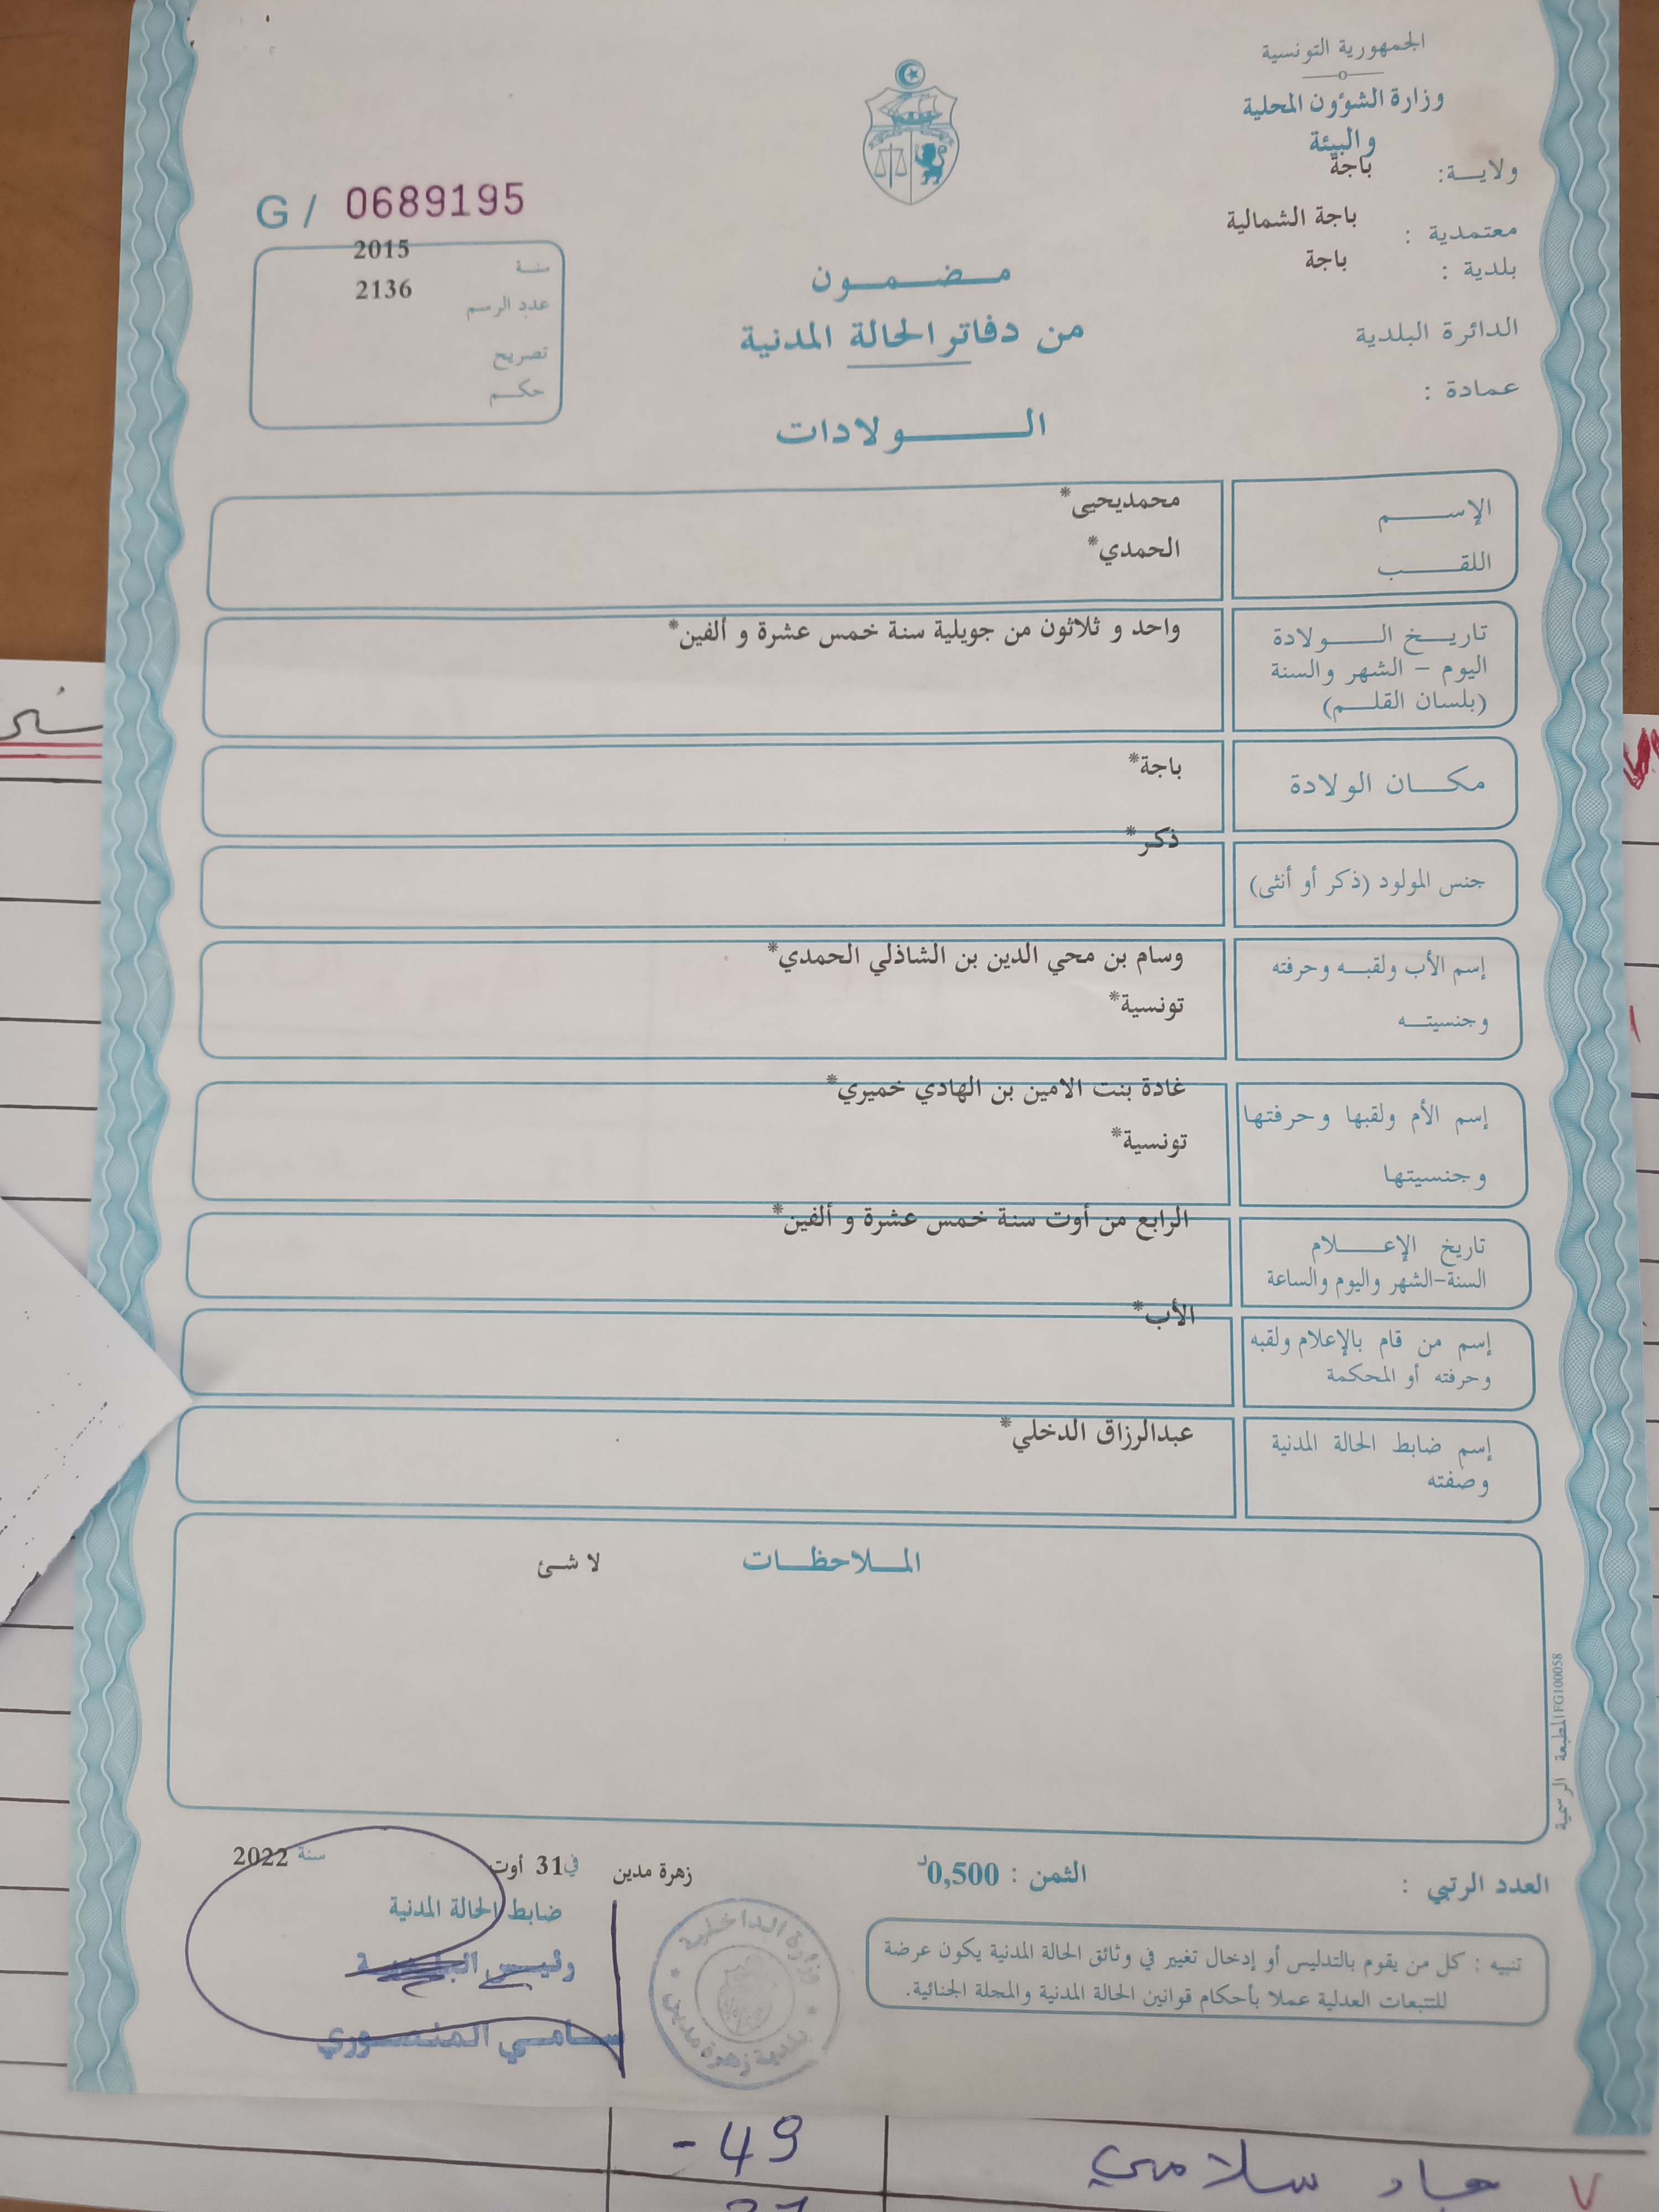 الجمهورية التونسية
وزارة الشؤون المحلية
والبيئة
ولايـــة: باجة
معتمدية : باجة الشمالية
بلدية : باجة
الدائرة البلدية
عمادة :
G / 0689195
سنة 2015
عدد الرسم 2136
تصريح
حكم
مضمون
من دفاتر الحالة المدنية
الولادات
الإسم محمديحيى*
اللقب الحمدي*
تاريخ الولادة
اليوم - الشهر والسنة
(بلسان القلم)
واحد و ثلاثون من جويلية سنة خمس عشرة و ألفين*
مكان الولادة باجة*
جنس المولود (ذكر أو أنثى) ذكر*
إسم الأب ولقبه وحرفته
وجنسيته
وسام بن محي الدين بن الشاذلي الحمدي*
تونسية*
إسم الأم ولقبها وحرفتها
وجنسيتها
غادة بنت الامين بن الهادي خميري*
تونسية*
تاريخ الإعلام
السنة-الشهر واليوم والساعة
الرابع من أوت سنة خمس عشرة و ألفين*
إسم من قام بالإعلام ولقبه
وحرفته أو المحكمة
الأب*
إسم ضابط الحالة المدنية
وصفته
عبدالرزاق الدخلي*
الملاحظات لا شئ
المطبعة الرسمية FG100058
العدد الرتبي :
الثمن : 0,500د
زهرة مدين في 31 أوت سنة 2022
ضابط الحالة المدنية
رئيس البلدية
سامي المنصوري
وزارة الداخلية
بلدية زهرة مدين
تنبيه : كل من يقوم بالتدليس أو إدخال تغيير في وثائق الحالة المدنية يكون عرضة
للتتبعات العدلية عملا بأحكام قوانين الحالة المدنية والمجلة الجنائية.
- 49
سلامي